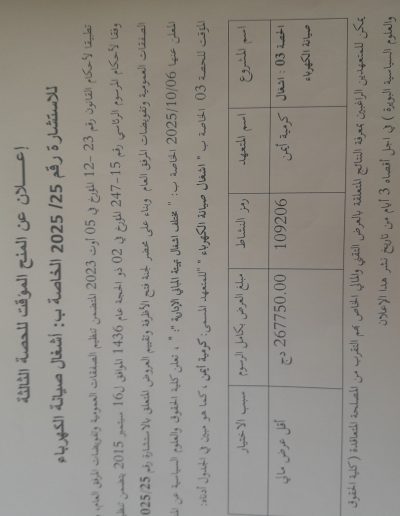 إعــلان عن المنح المؤقت للحصة الثالثة
للاستشارة رقم 25/ 2025 الخاصة ب: أشغال صيانة الكهرباء
تطبيقا لأحكام القانون رقم 23 -12 المؤرخ في 05 أوت 2023 المتضمن تنظيم الصفقات العمومية وتفويضات المرفق العام،
وفقا لأحكام المرسوم الرئاسي رقم 15-247 المؤرخ في 02 ذو الحجة عام 1436 الموافق ل16 سبتمبر 2015 يتضمن تنظيم
الصفقات العمومية وتفويضات المرفق العام وبناء على محضر لجنة فتح الأظرفة وتقييم العروض المتعلق بالاستشارة رقم 025/25
المعلن عنها 2025/10/06 الخاصة ب: " مختلف أشغال تهيئة المباني الإدارية "، تعلن كلية الحقوق والعلوم السياسية عن
المؤقت للحصة 03 الخاصة ب " أشغال صيانة الكهرباء " للمتعهد المسمى: كرمية أيمن ، كما هو مبين في الجدول أدناه:
اسم المشروع اسم المتعهد رمز النشاط مبلغ العرض بكامل الرسوم سبب الاختيار
الحصة 03 : أشغال صيانة الكهرباء كرمية أيمن 109206 267750.00 دج أقل عرض مالي
يمكن للمتعهدين الراغبين بمعرفة النتائج المتعلقة بالعرض التقني والمالي الخاص بهم التقرب من المصلحة المتعاقدة (كلية الحقوق
والعلوم السياسية البويرة ) في أجل أقصاه 3 أيام من تاريخ نشر هذا الاعلان